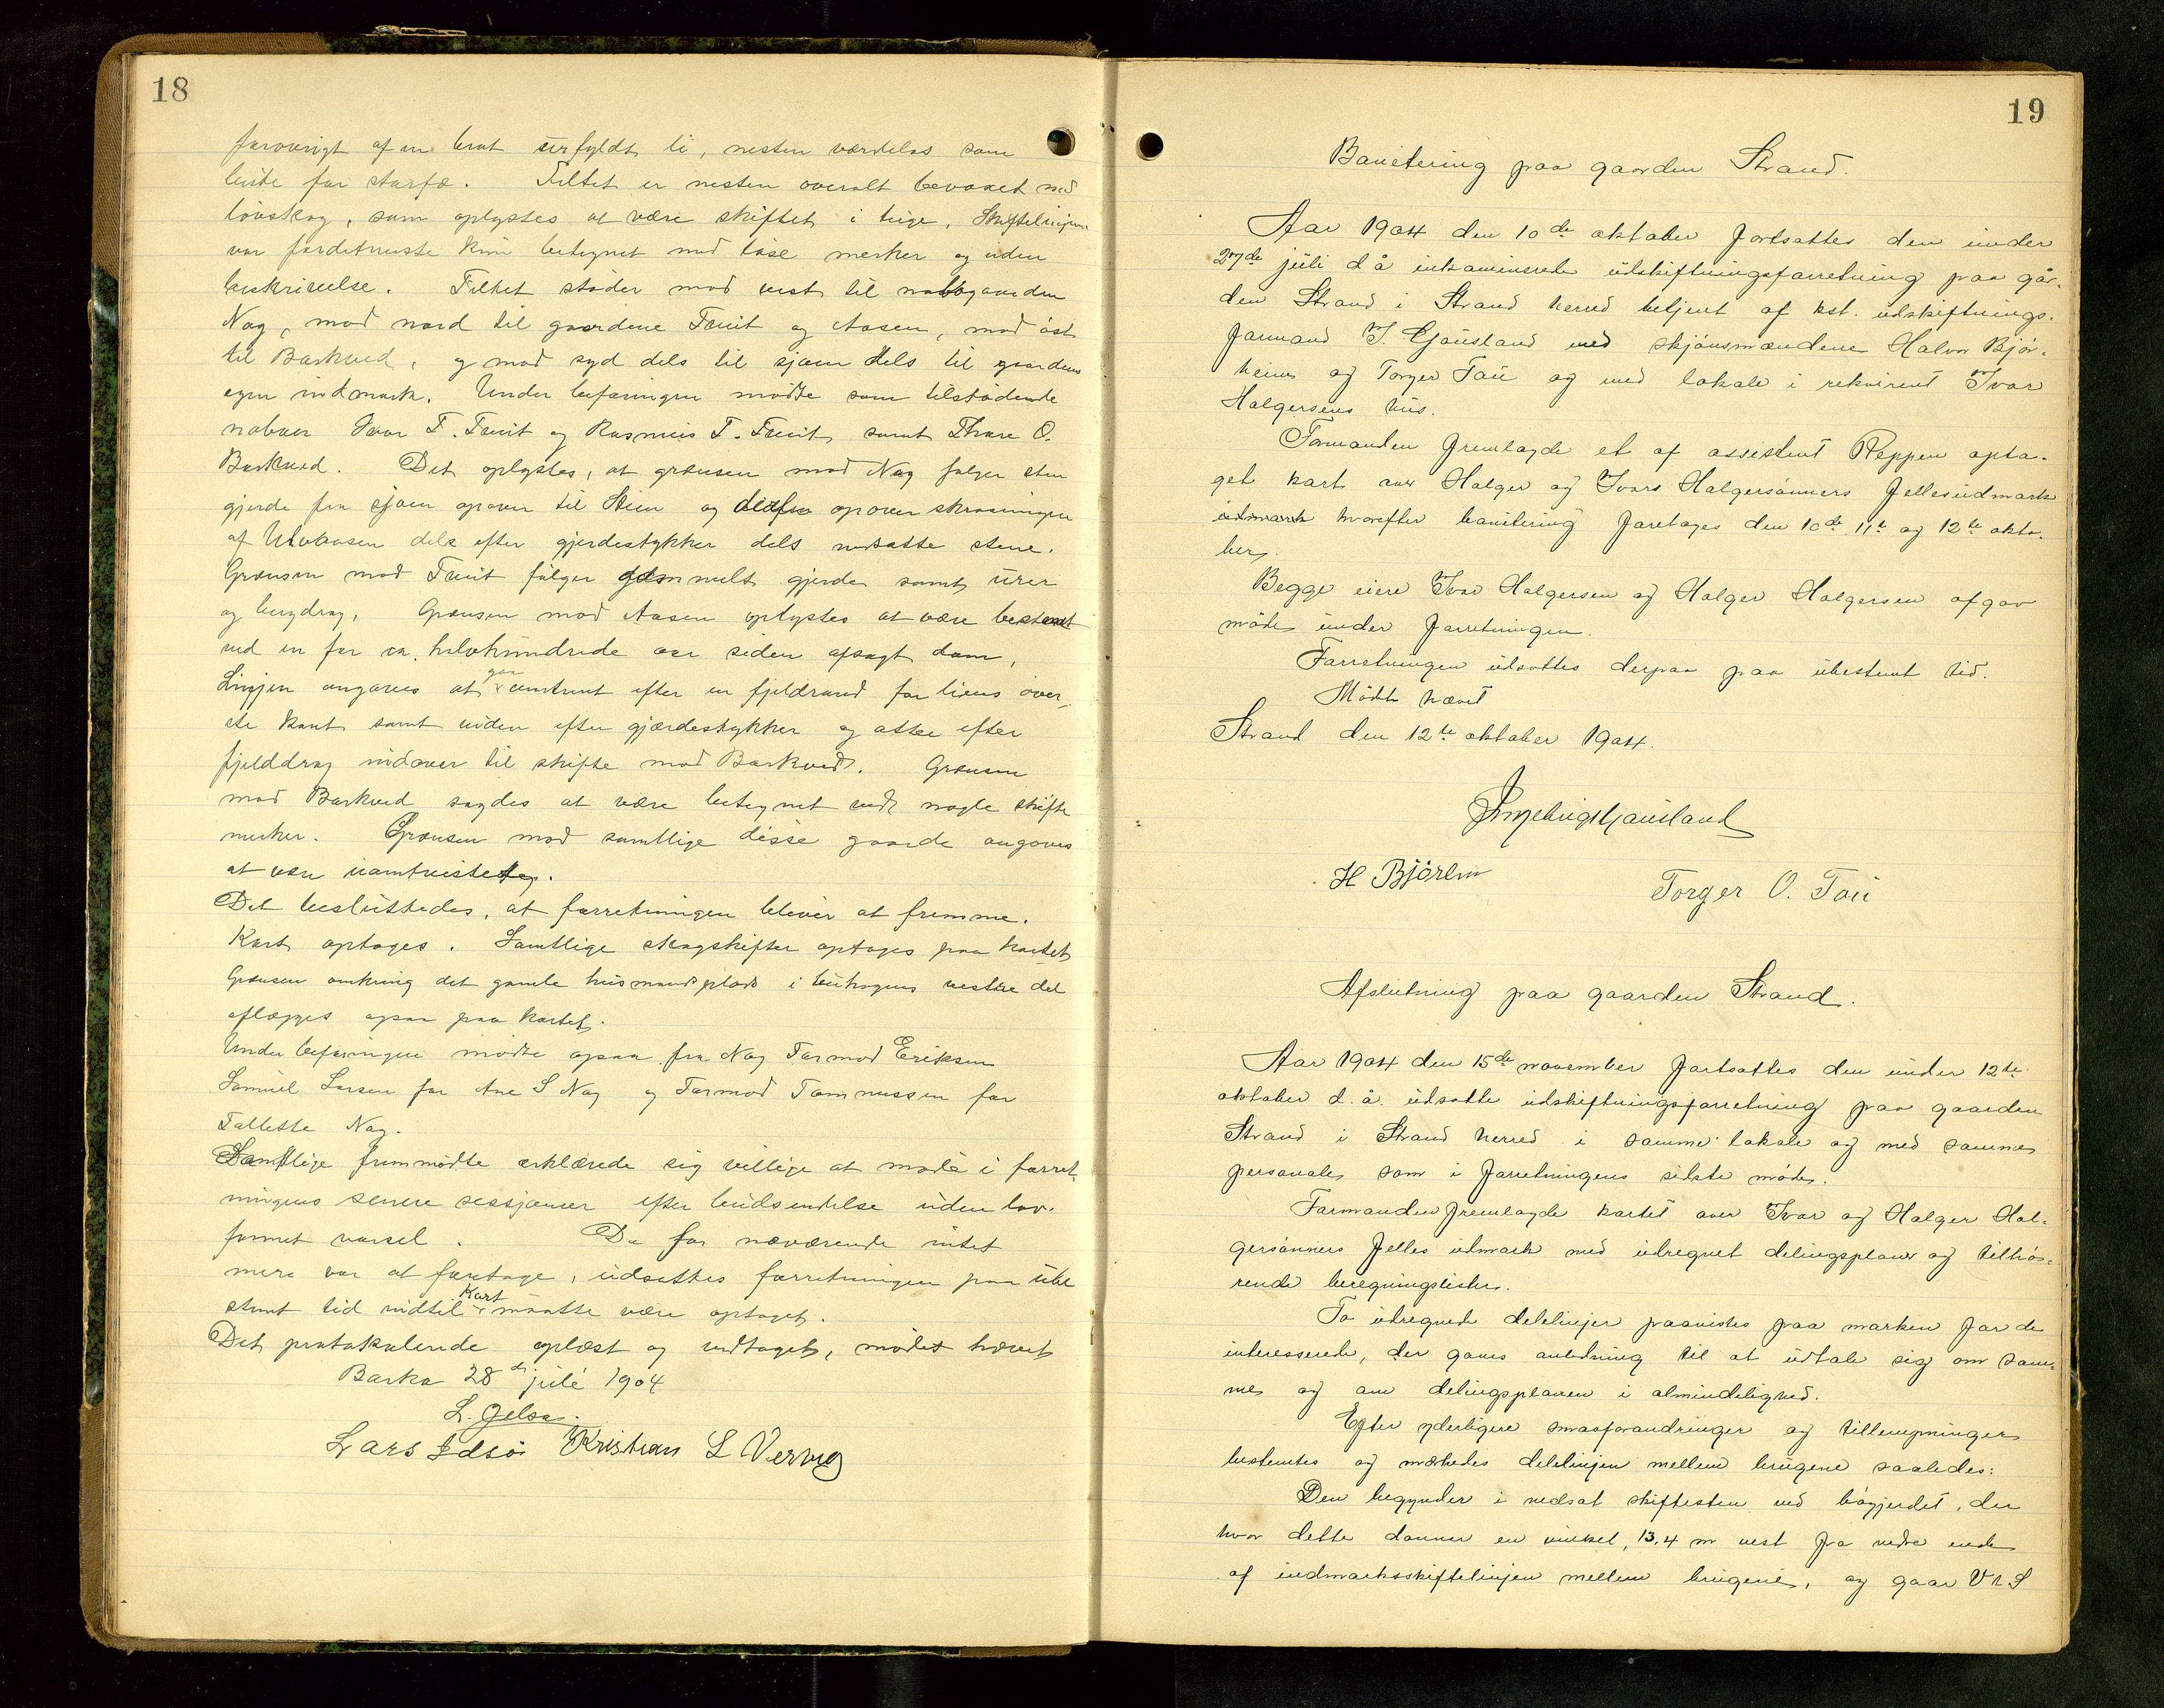 18
forøvrigt af en brat urfyldt li, nesten værdeløs som
beite for storfæ. Feltet er nesten overalt bevoxet med
løvskog, som oplystes at være skiftet i teige. Skiftelinjene
var fordetmeste kun betegnet med løse merker og uden
beskrivelse. Feltet støder mod vest til nabogaarden
Nag, mod nord til gaardene Tveit og Aasen, mod øst
til Barkved, og mod syd dels til sjøen dels til gaardens
egen indmark. Under befaringen mødte som tilstødende
naboer Ivar T. Tveit og Rasmus T. Tveit samt Thore O.
Barkved. Det oplystes, at grænsen mod Nag følger sten
gjerde fra sjøen opover til Stien og derfra opover skraaningen
af dels efter gjerdestykker dels nedsatte stene.
Grænsen mod Tveit følger gammelt gjerde samt urer
og bergdrag. Grænsen mod Aasen oplystes at være bestemt
ved en for ca. halvhundrede aar siden afsagt dom,
Linjen angaves at gaa omtrent efter en fjeldrand for liens øver-
ste kant samt siden efter gjærdestykker og atter efter
fjelddrag indover til skifte mod Barkved. Grænsen
mod Barkved sagdes at være betegnet ved nogle skifte
merker. Grænsen mod samtlige disse gaarde angaves
at være uomtvistelig.
Det besluttedes, at forretningen bliver at fremme.
Kart optages. Samtlige skogskifter optages paa kartet
Grænsen omkring det gamle husmandsplads i vestre del
aflægges ogsaa paa kartet.
Under befaringen mødte ogsaa fra Nag Tormod Eriksen
Samuel Larsen for Ane S Nag og Tormod Tommessen for
Tallette Nag.
Samtlige fremmødte erklærede sig villige at møde i forret-
ningens senere sessjoner efter budsendelse uden lov-
formet varsel. Da for nærværende intet
mere var at foretage, udsattes forretningen paa ube
stemt tid indtil Kart maatte være optaget.
Det protokolerede oplæst og vedtaget, mødet hævet
Barka 28 de juli 1904
L. Gelsa.
Lars Idsøi Kristian L Vervig
19
Bonitering paa gaarden Strand.
Aar 1904 den 10de oktober fortsattes den under
27de juli d å inkaminerede udskiftningsforretning paa går-
den Strand i Strand herred betjent af kst. udskiftnings-
formand I. Gjøusland med skjønsmændene Halvor Bjør-
heim og Torger Tau og med lokale i rekvirent Ivar
Holgersens hus.
Formanden fremlagde et af assistent Reppen opta-
get kart over Holger og Ivars Holgersønners fellesudmark
udmark hvorefter bonitering foretoges den 10de 11te og 12te okto-
ber.
Begge eiere Ivar Holgersen og Holger Holgersen afgav
møde under forretningen.
Forretningen udsattes derpaa paa ubestemt tid.
Mødet hævet
Strand den 12te oktober 1904.
Ingebrigt Gjøusland
H Bjørhm
Torger O. Tau
Afslutning paa gaarden Strand.
Aar 1904 den 15de november fortsattes den under 12te
oktober d. å. udsatte udskiftningsforretning paa gaarden
Strand i Strand herred i samme lokale og med samme
personale som i forretningens sidste møde.
Formanden fremlagde kartet over Ivar og Holger Hol-
gersønners felles udmark med udregnet delingsplan og tilhø-
rende beregningslister.
To udregnede delelinjer paavistes paa marken for de
interesserede, der gaves anledning til at udtale sig om sam-
me og om delingsplanen i almindelighed.
Efter yderligere smaaforandringer og tillempninger
bestemtes og mærkedes delelinjen mellem brugene saaledes:
Den begynder i nedsat skiftesten ved bøgjerdet, der
hvor dette danner en vinkel, 13.4 m vest fra nedre ende
af indmarksskiftelinjen mellem brugene, og gaar V t S